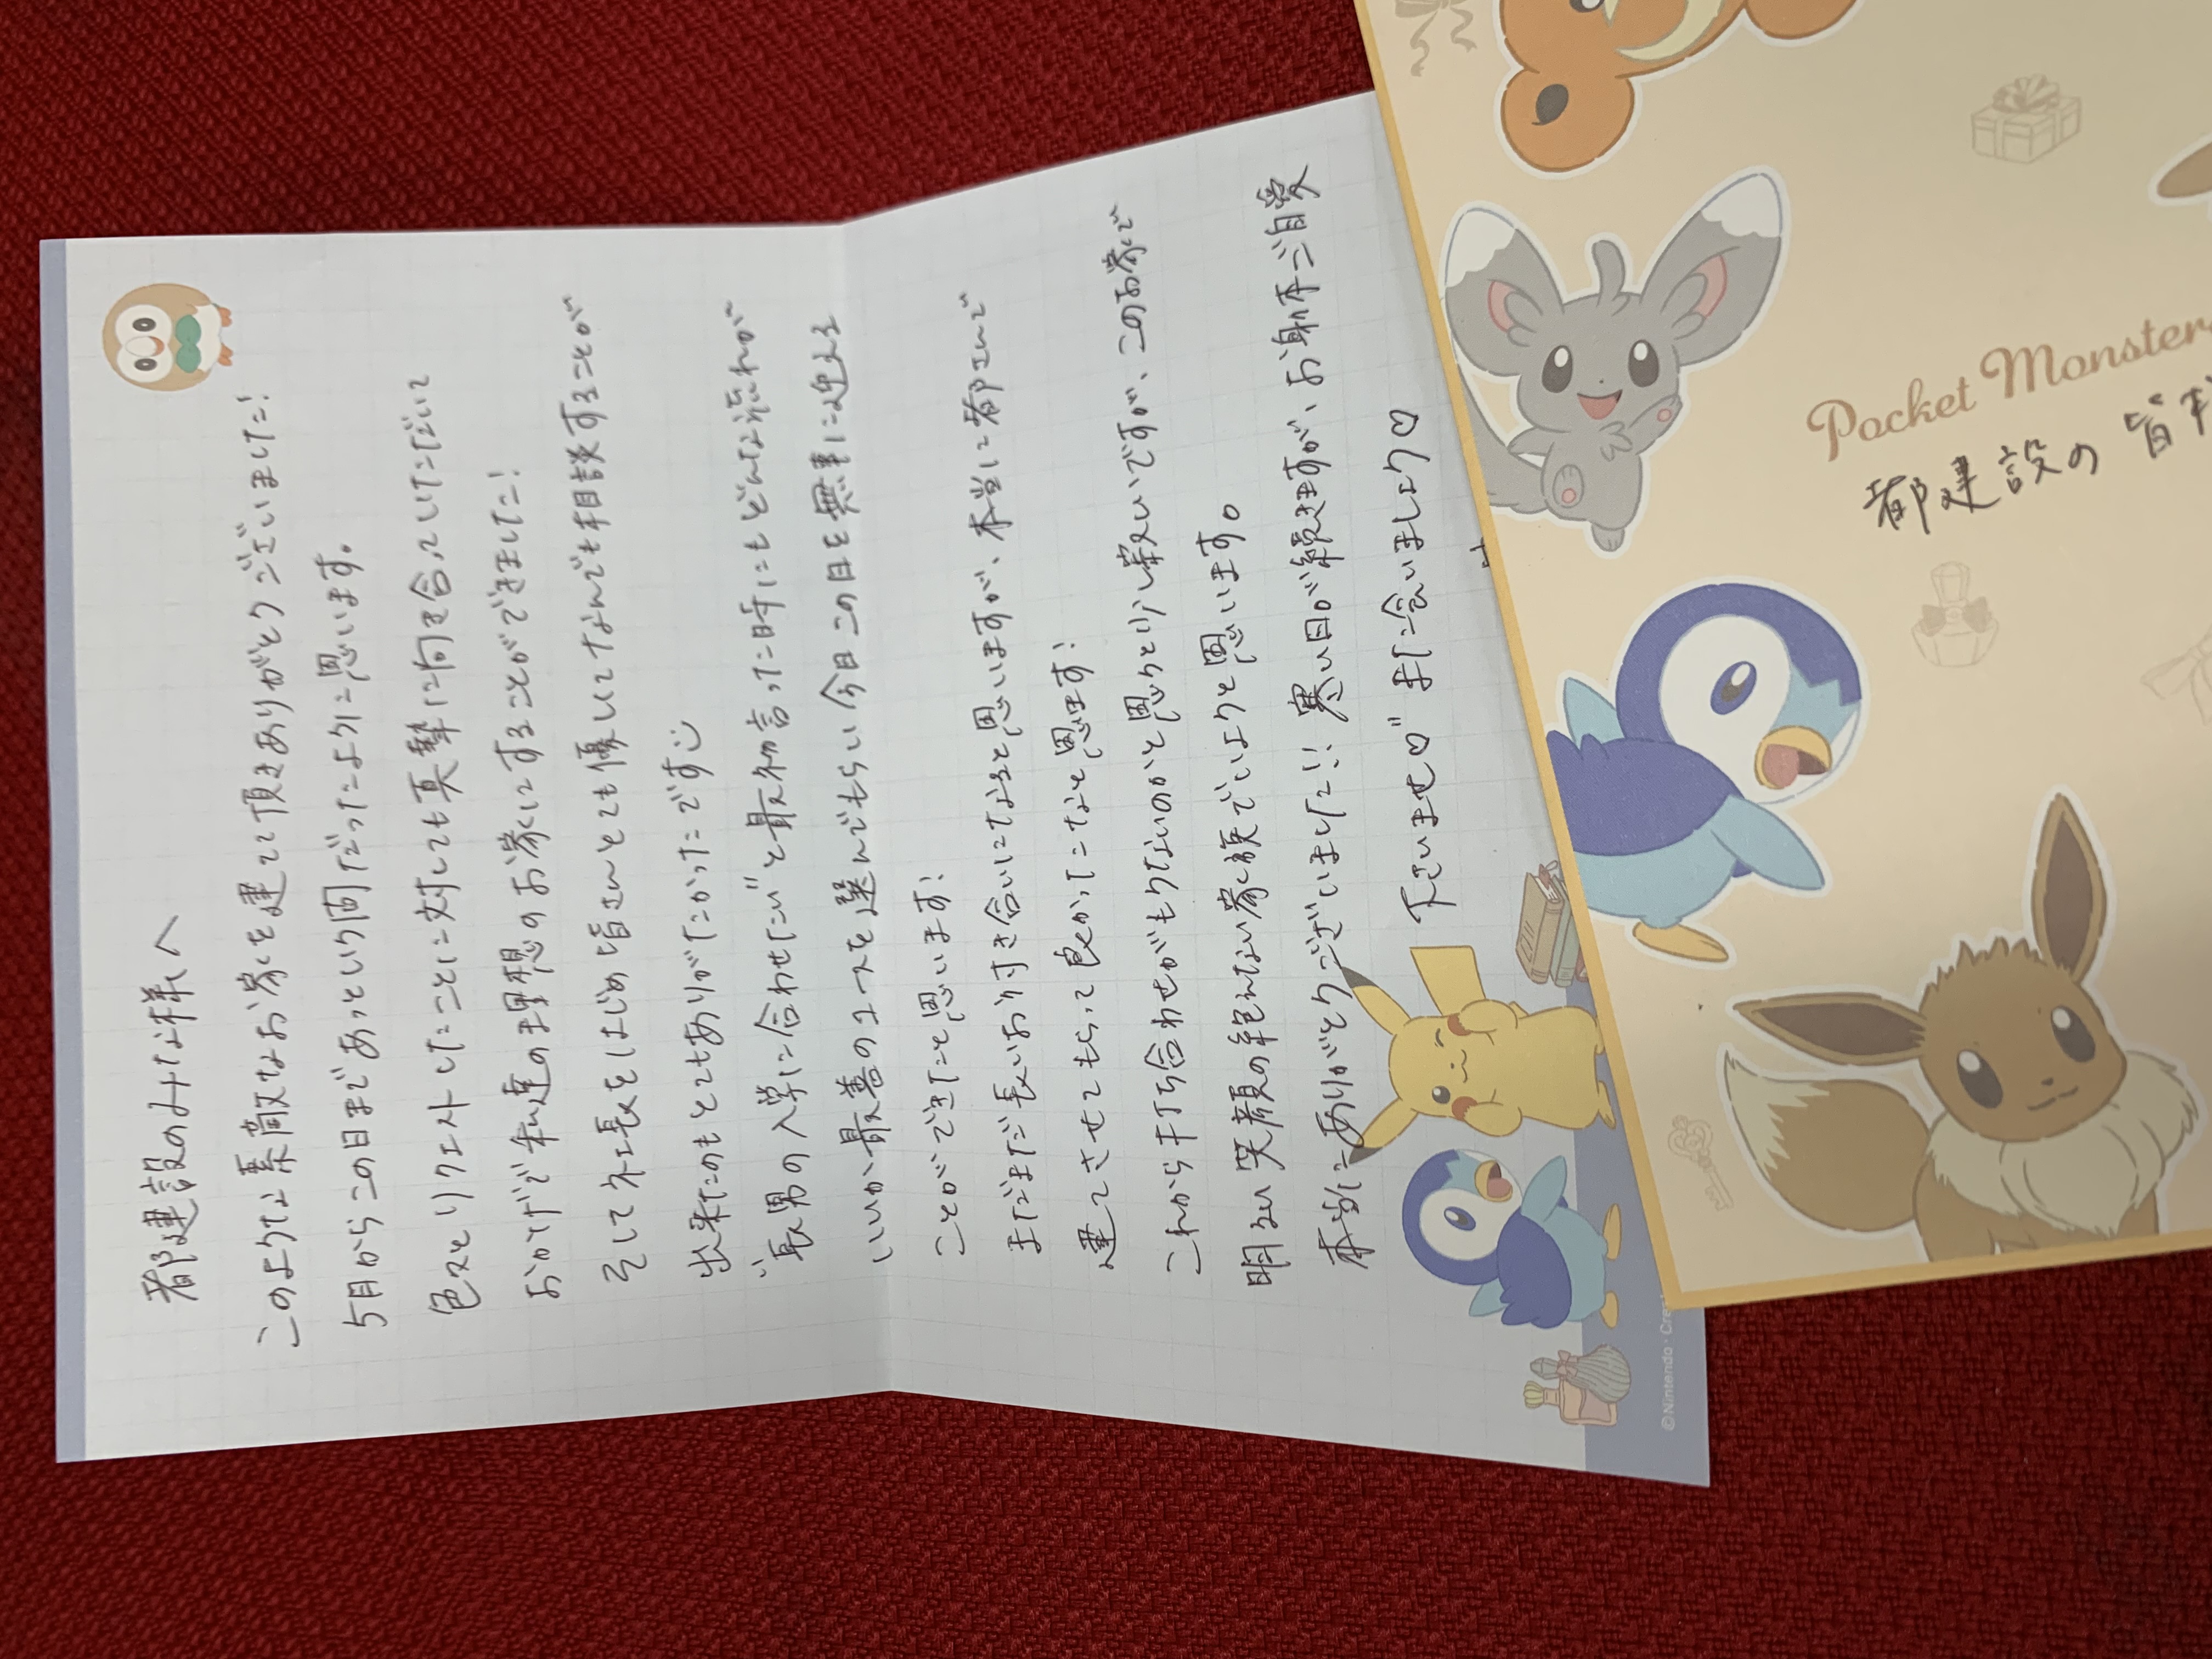 都建設のみな様へ
このような素敵なお家を建てて頂きありがとうございました！
5月からこの日まであっという間だったように思います。
色々とリクエストしたことに対しても真摯に向き合っていただいて
おかげで私達の理想のお家にすることができました！
そして社長をはじめ皆さんとても優しくてなんでも相談することが
出来たのもとてもありがたかったです
"長男の入学に合わせたい"と最初言った時にもどんな流れが
いいか最善のコースを選んでもらい今日この日を無事に迎える
ことができたと思います！
まだまだ長いお付き合いになると思いますが、本当に都さんで
建てさせてもらって良かったなと思います！
これから打ち合わせがもうないのかと思うと少し寂しいですが、このお家で
明るい笑顔の絶えない家族でいようと思います。
本当にありがとうございました！！寒い日が続きますが、お身体ご自愛
下さいませ♡" また会いましょう♡
©Nintendo・Cre
Pocket Monster
都建設の皆様